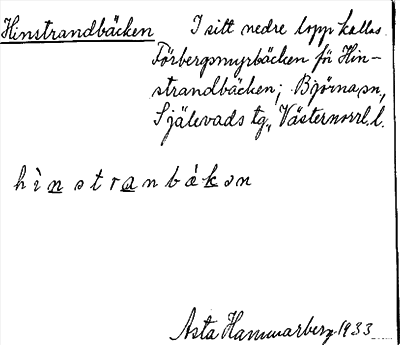 Hinstrandbäcken I sitt nedre lopp kallas
Försbergsmyrbäcken för Hin-
strandbäcken; Björna sn,
Själevads tg, Västernorrl. l.
hìnstranbákən
Asta Hammarberg 1933